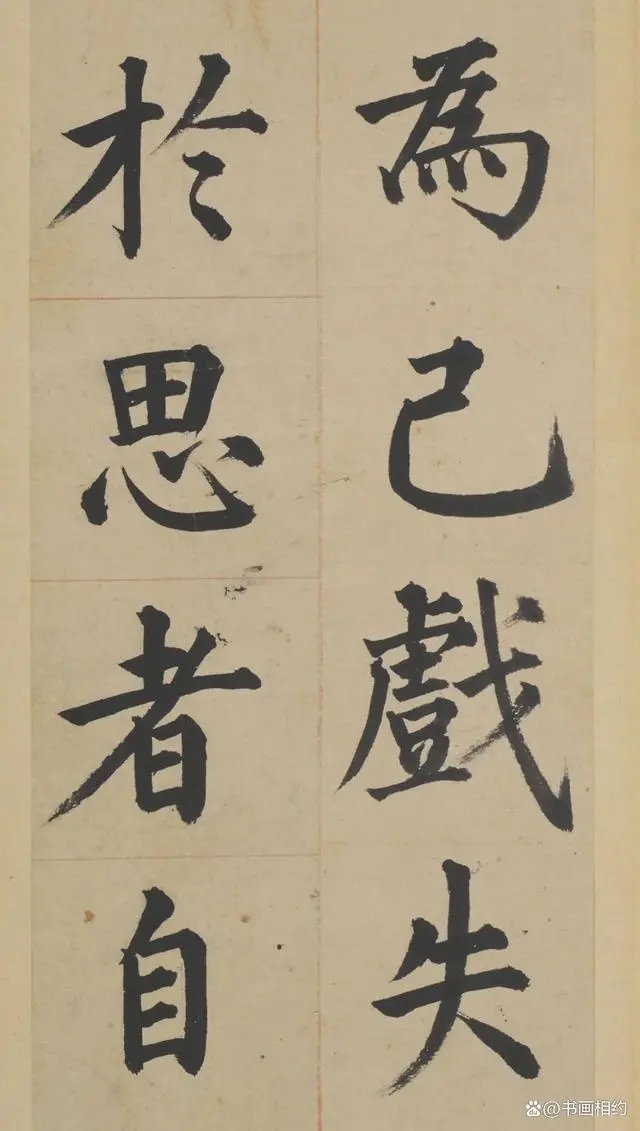 為己戲失
於思者自
@书画相约